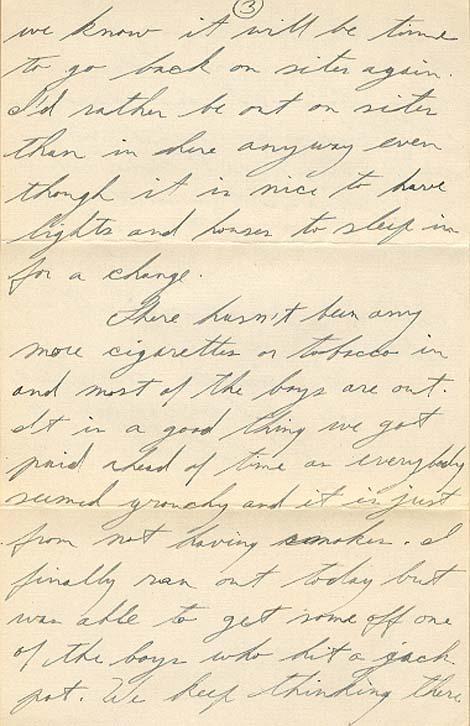 3
we know it will be time
to go back on sites again.
I'd rather be out on sites
than in here anyway even
though it is nice to have
lights and houses to sleep in
for a change.
There hasn't been any
more cigarettes or tobacco in
and most of the boys are out.
It is a good thing we got
paid ahead of time as everybody
seemed grouchy and it is just
from not having smokes. I
finally ran out today but
was able to get some off one
of the boys who hit a jack
pot. We keep thinking there